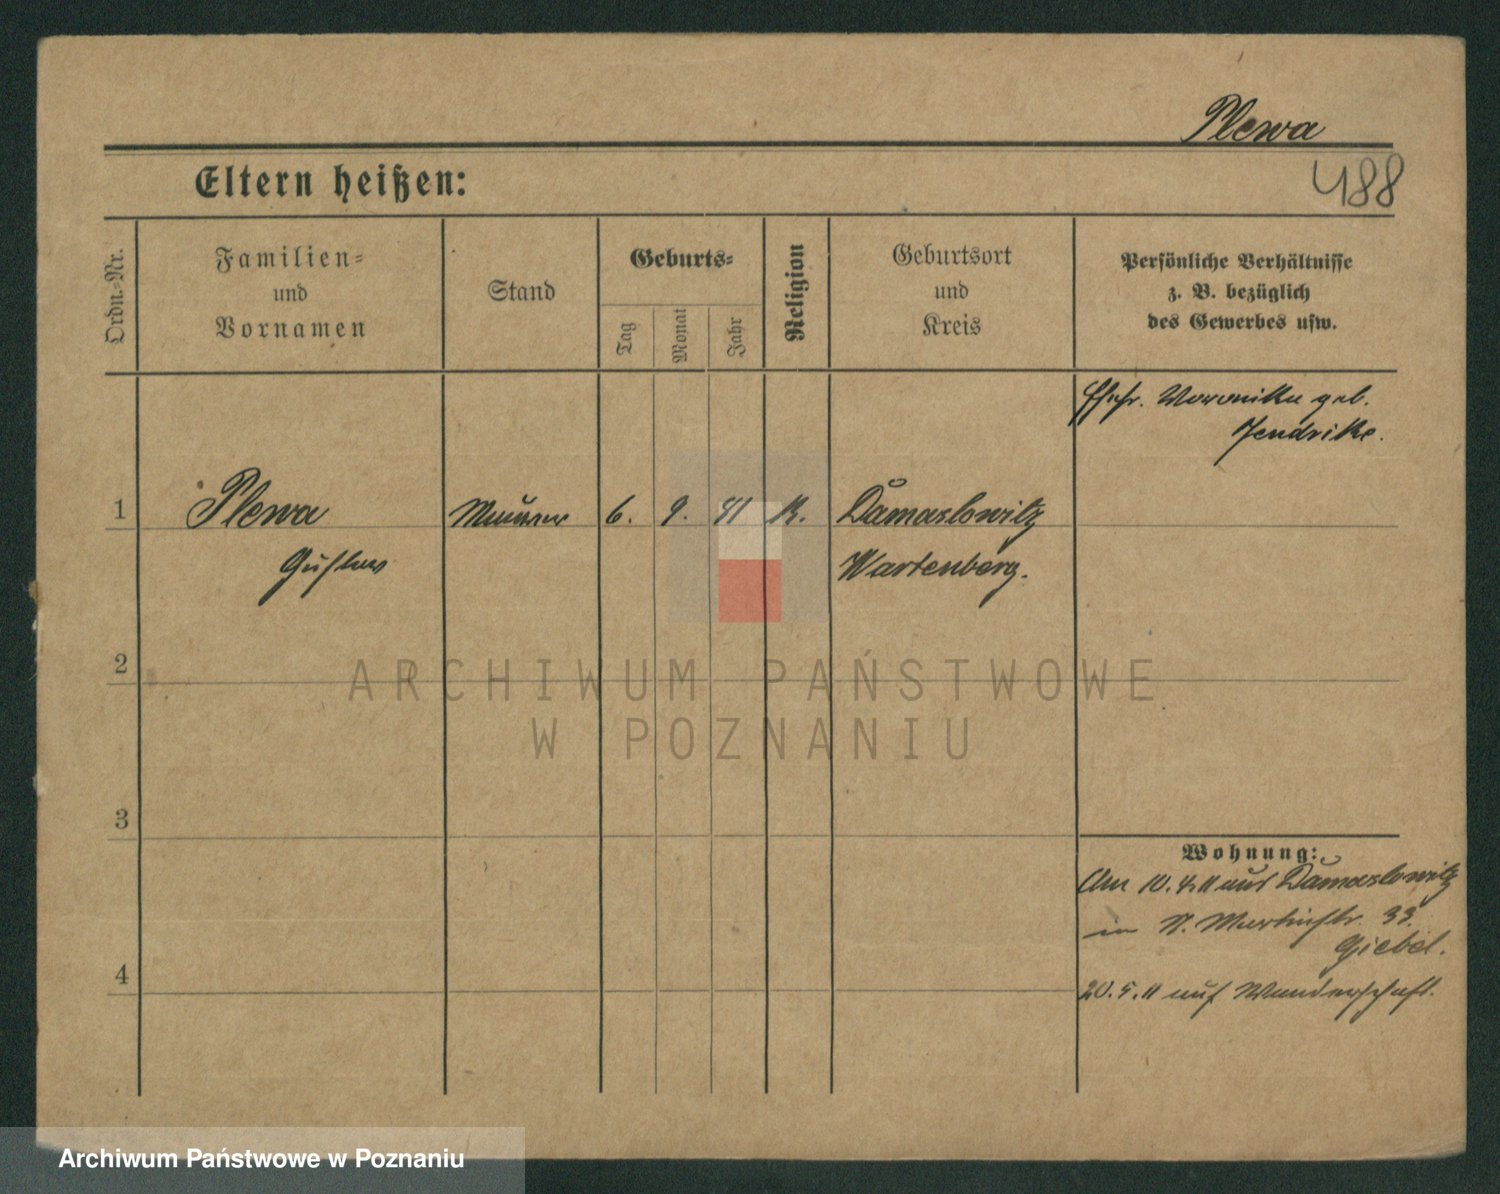 Plewa
488
Eltern heißen:
Ordn.-Nr.
Familien-
und
Vornamen
Stand
Geburts-
Tag
Monat
Jahr
Religion
Geburtsort
und
Kreis
Persönliche Verhältnisse
z. B. bezüglich
des Gewerbes usw.
Ehefr. Veronika geb.
Jendrike.
1
Plewa
Maurer
6.
9.
81
K.
Damaslowitz
Gustav
Wartenberg.
2
ARCHIWUM PAŃSTWOWE
W POZNANIU
3
Wohnung:
Am 10.4.11 aus Damaslowitz
in St. Martinstr. 33.
Giebel.
4
20.5.11 auf Wanderschaft.
Archiwum Państwowe w Poznaniu